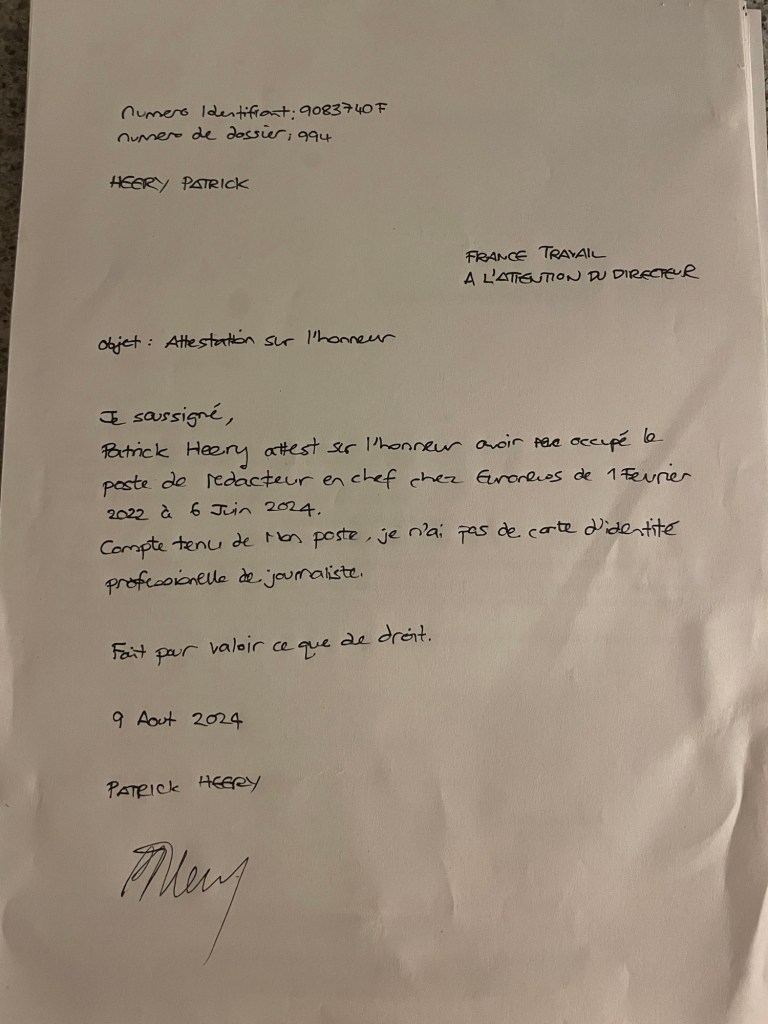 Numero Identifiant: 9083740F
numero de dossier; 994
HEERY PATRICK
FRANCE TRAVAIL
A L'ATTENTION DU DIRECTEUR
Objet: Attestation sur l'honneur
Je soussigné,
Patrick Heery attest sur l'honneur avoir occupé le
poste de redacteur en chef chez Euronews de 1 Fevrier
2022 à 6 Juin 2024.
Compte tenu de Mon poste, je n'ai pas de carte d'identité
professionelle de journaliste.
Fait pour valoir ce que de droit.
9 Aout 2024
PATRICK HEERY